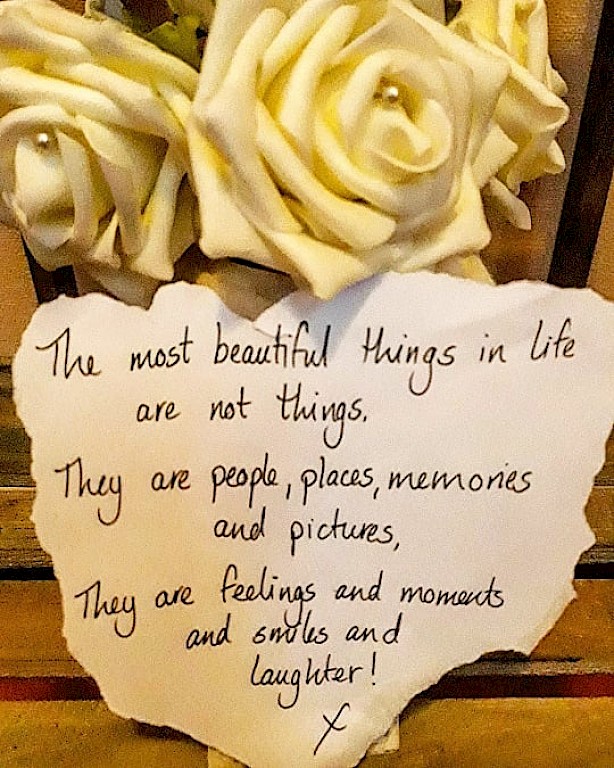 The most beautiful things in life
are not things.
They are people, places, memories
and pictures,
They are feelings and moments
and smiles and
laughter!
x